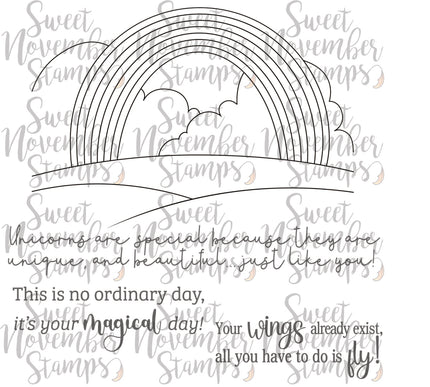 Sweet November Stamps
Unicorns are special because they are
unique, and beautiful...just like you!
This is no ordinary day,
it's your magical day!
Your wings already exist,
all you have to do is fly!